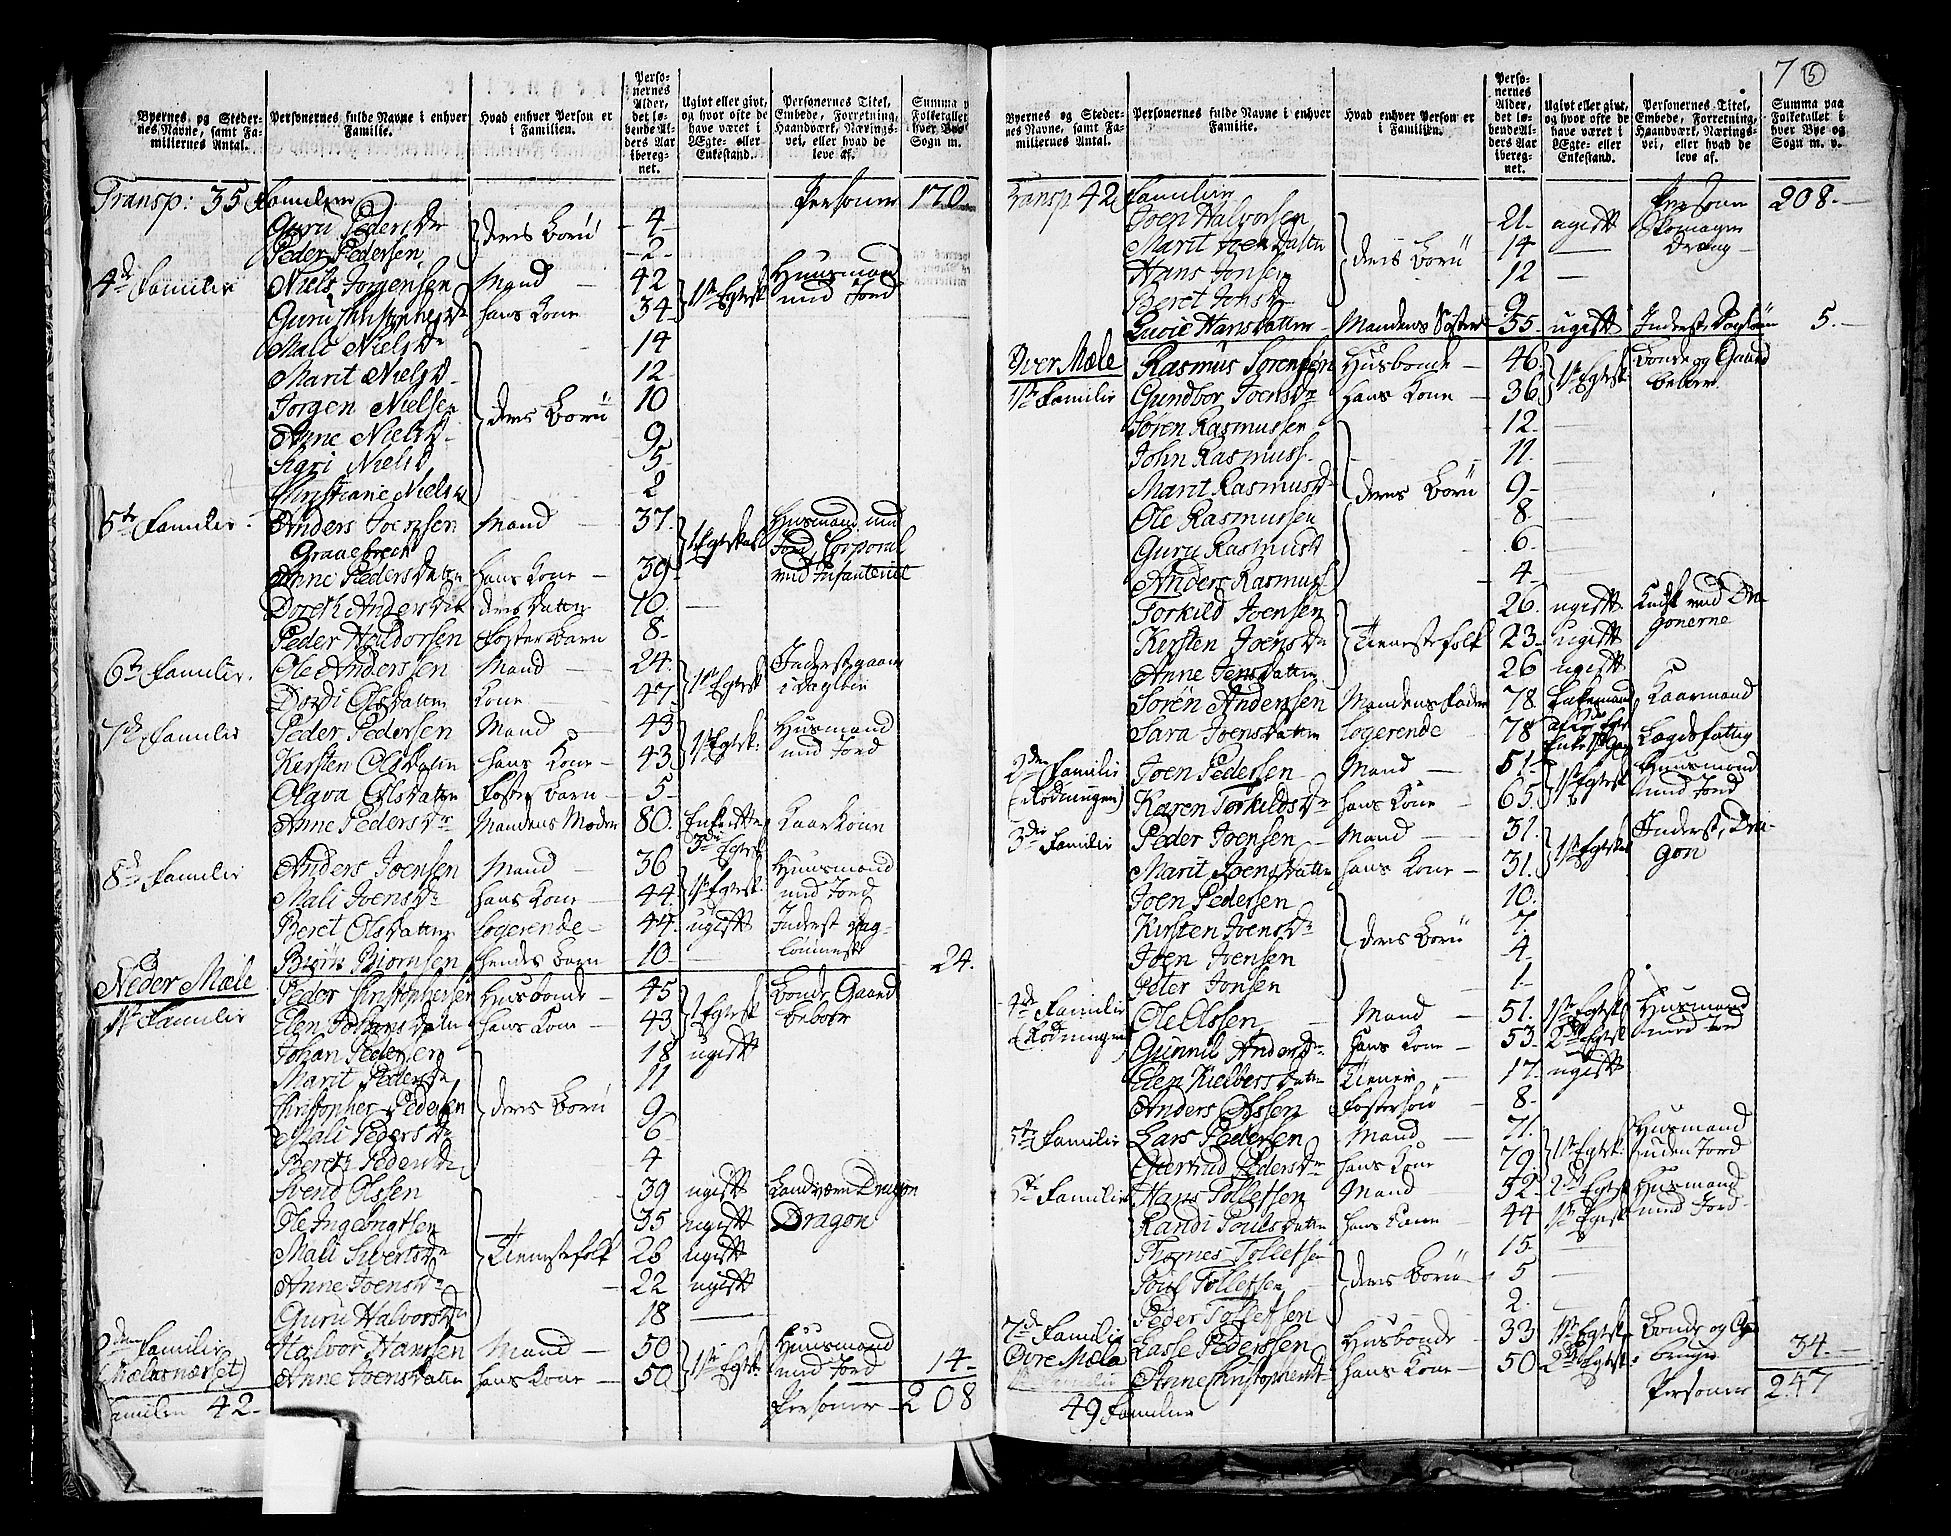 7 5
Byernes og Stedernes Navne, samt Familiernes Antal.
Personernes fulde Navne i enhver Familie.
Hvad enhver Person er i Familien.
Personernes Alder, det løbende Alders Aar iberegnet.
Ugivt eller givt, og hvor ofte de have været i Ægte- eller Enkestand.
Personernes Titel, Embede, Forretning, Haandværk, Næringsvei, eller hvad de leve af.
Summa
Transp: 35 Familier Personer 170
Guru Peders Dr deris Børn 4
Peder Pedersen 2
4de Familie Niels Jørgensen Mand 42 1ste Egtesk Huusmand med Jord
Guru Christophers Dr hans Kone 34
Mali Niels Dr deris Børn 14
Marit Niels D. 12
Jørgen Nielsen 10
Anne Niels D. 9
Sigri Niels D 5
Christiane Niels D 2
5te Familie Anders Joensen Mand 37 1 Egteskab Huusmand med Jord, Corporal ved Infanteriet
Graaebrech
Anne Pedersdatter hans Kone 39
Doreth Anders Dtr deris Datter 10
Peder Haldorsen Foster Barn 8
6te Familie Ole Andersen Mand 24 1ste Egtesk Inderst gaar i Dagleie
Dordi Olsdatter Kone 47
7de Familie Peder Pedersen Mand 43 1ste Egtesk: Huusmand med Jord
Kirsten Olsdatter hans Kone 43
Olava Olsdatter Foster barn 5
Anne Peders Dr Mandens Moder 80 Enke efter 3de Egtesk Kaarkone
8de Familie Anders Joensen Mand 36 1ste Egtesk: Huusmand med Jord
Mali Joens Dr hans Kone 44
Beret Olsdatter Logerende 44 ugift Inderst
Biørn Biørnsen hendes barn 10 24.
Neder Mæle
1ste Familie Peder Christophersen Huusbonde 45 1 Egtesk Bonde Gaard beboer
Elen Johansdatter hans Kone 43
Johan Pedersen deris Børn 18 ugift
Marit Peders Dr 11
Christopher Pedersen 9
Mali Peders Dr 6
Beret Peders Dr 4
Svend Olssen Tienestefolk 39 ugift Landværn Dragon
Ole Ingebrigtsen 35 ugift Dragon
Mali Siverts Dr 26 ugift
Anne Joens Dr 22 ugift
Guru Halvors Dr 18
2den Familie Halvor Hansen Mand 50 1ste Egtesk Huusmand med Jord 14.
Anne Joensdatter hans Kone 50
Familier 42 Personer 208
Byernes og Stedernes Navne, samt Familiernes Antal.
Personernes fulde Navne i enhver Familie.
Hvad enhver Person er i Familien.
Personernes Alder, det løbende Alders Aar iberegnet.
Ugivt eller givt, og hvor ofte de have været i Ægte- eller Enkestand.
Personernes Titel, Embede, Forretning, Haandværk, Næringsvei, eller hvad de leve af.
Summa paa Folketallet i hver Bye og Sogn m. v.
Transp 42 Familier Personer 208.
Joen Halvorsen deris Børn 21 ugift Skomager Dreng
Marit Joensdatter 14
Hans Jonsen 12
Beret Jons Dr 9
Lucie Hansdatter Mandens Søster 55 ugift Inderst 5.
Over Mæle Rasmus Sørensøn Husbonde 46 1ste Egtesk Bonde og Gaard beboer
1ste Familie Gundbor Joens Dr hans Kone 36
Søren Rasmussen deris Børn 12
John Rasmuss. 11
Marit Rasmus D 9
Ole Rasmussen 8
Guru Rasmus D 6
Anders Rasmuss 4
Torkild Joensen Tienestefolk 26 ugift Kudsk ved Dragonerne
Kersten Joens Dr 23 ugift
Anne Jensdatter 26 ugift
Søren Andersen Mandens Fader 78 Enkemand Kaarmand
Sara Joensdatter Logerende 78 Lægdsfattig
2den Familie (Rødningen) Joen Pedersen Mand 51 1ste Egtesk Huusmand med Jord
Karen Torkilds Dr hans Kone 65
3die Familie Peder Joensen Mand 31 1ste Egtesk Inderst, Dragon
Marit Joensdatter hans Kone 31
Joen Pedersen deris Børn 10
Kirsten Joens Dr 7
Joen Joensen 4
Peter Jonsen 1
4de Familie (Rødningen) Ole Olssen Mand 51 1ste Egtesk Huusmand med Jord
Gunnil Anders Dr hans Kone 53 2den Egtesk
Elen Kielbersdatter Tiener 17 ugift
Anders Olssen Fostersøn 8
5te Familie Lars Pedersen Mand 71 1ste Egtesk: Huusmand uden Jord
Giertrud Peders Dr hans Kone 79
6te Familie Hans Tollefsen Mand 52 2den Egtesk Huusmand med Jord
Randi Poulsdatter hans Kone 44 1ste Egtesk
Thomes Tollefsen deris Børn 15
Poul Tollefsen 5
Peder Tollefsen 2
7de Familie Lasse Pederssen Husbonde 33 1ste Egtesk Bonde og Gaardbruger 34.
Øvre Mæla Anne Christophers Dr hans Kone 50 2den Egtesk
49 Familier Personer 247